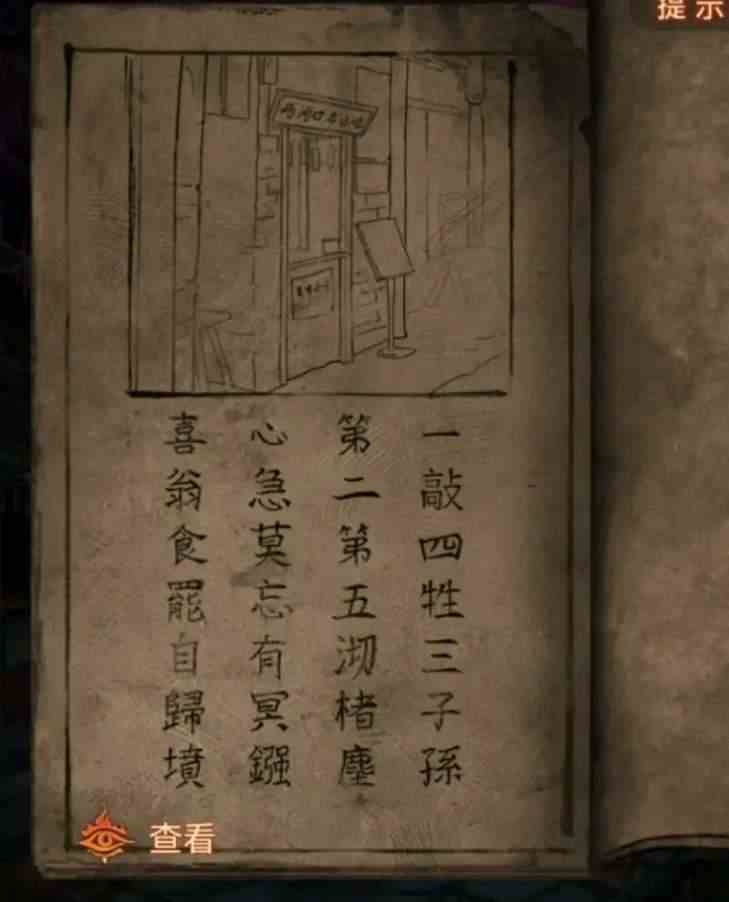 提示
一敲四牲三子孫
第二第五沏楮塵
心急莫忘有冥鏹
喜翁食罷自歸墳
查看